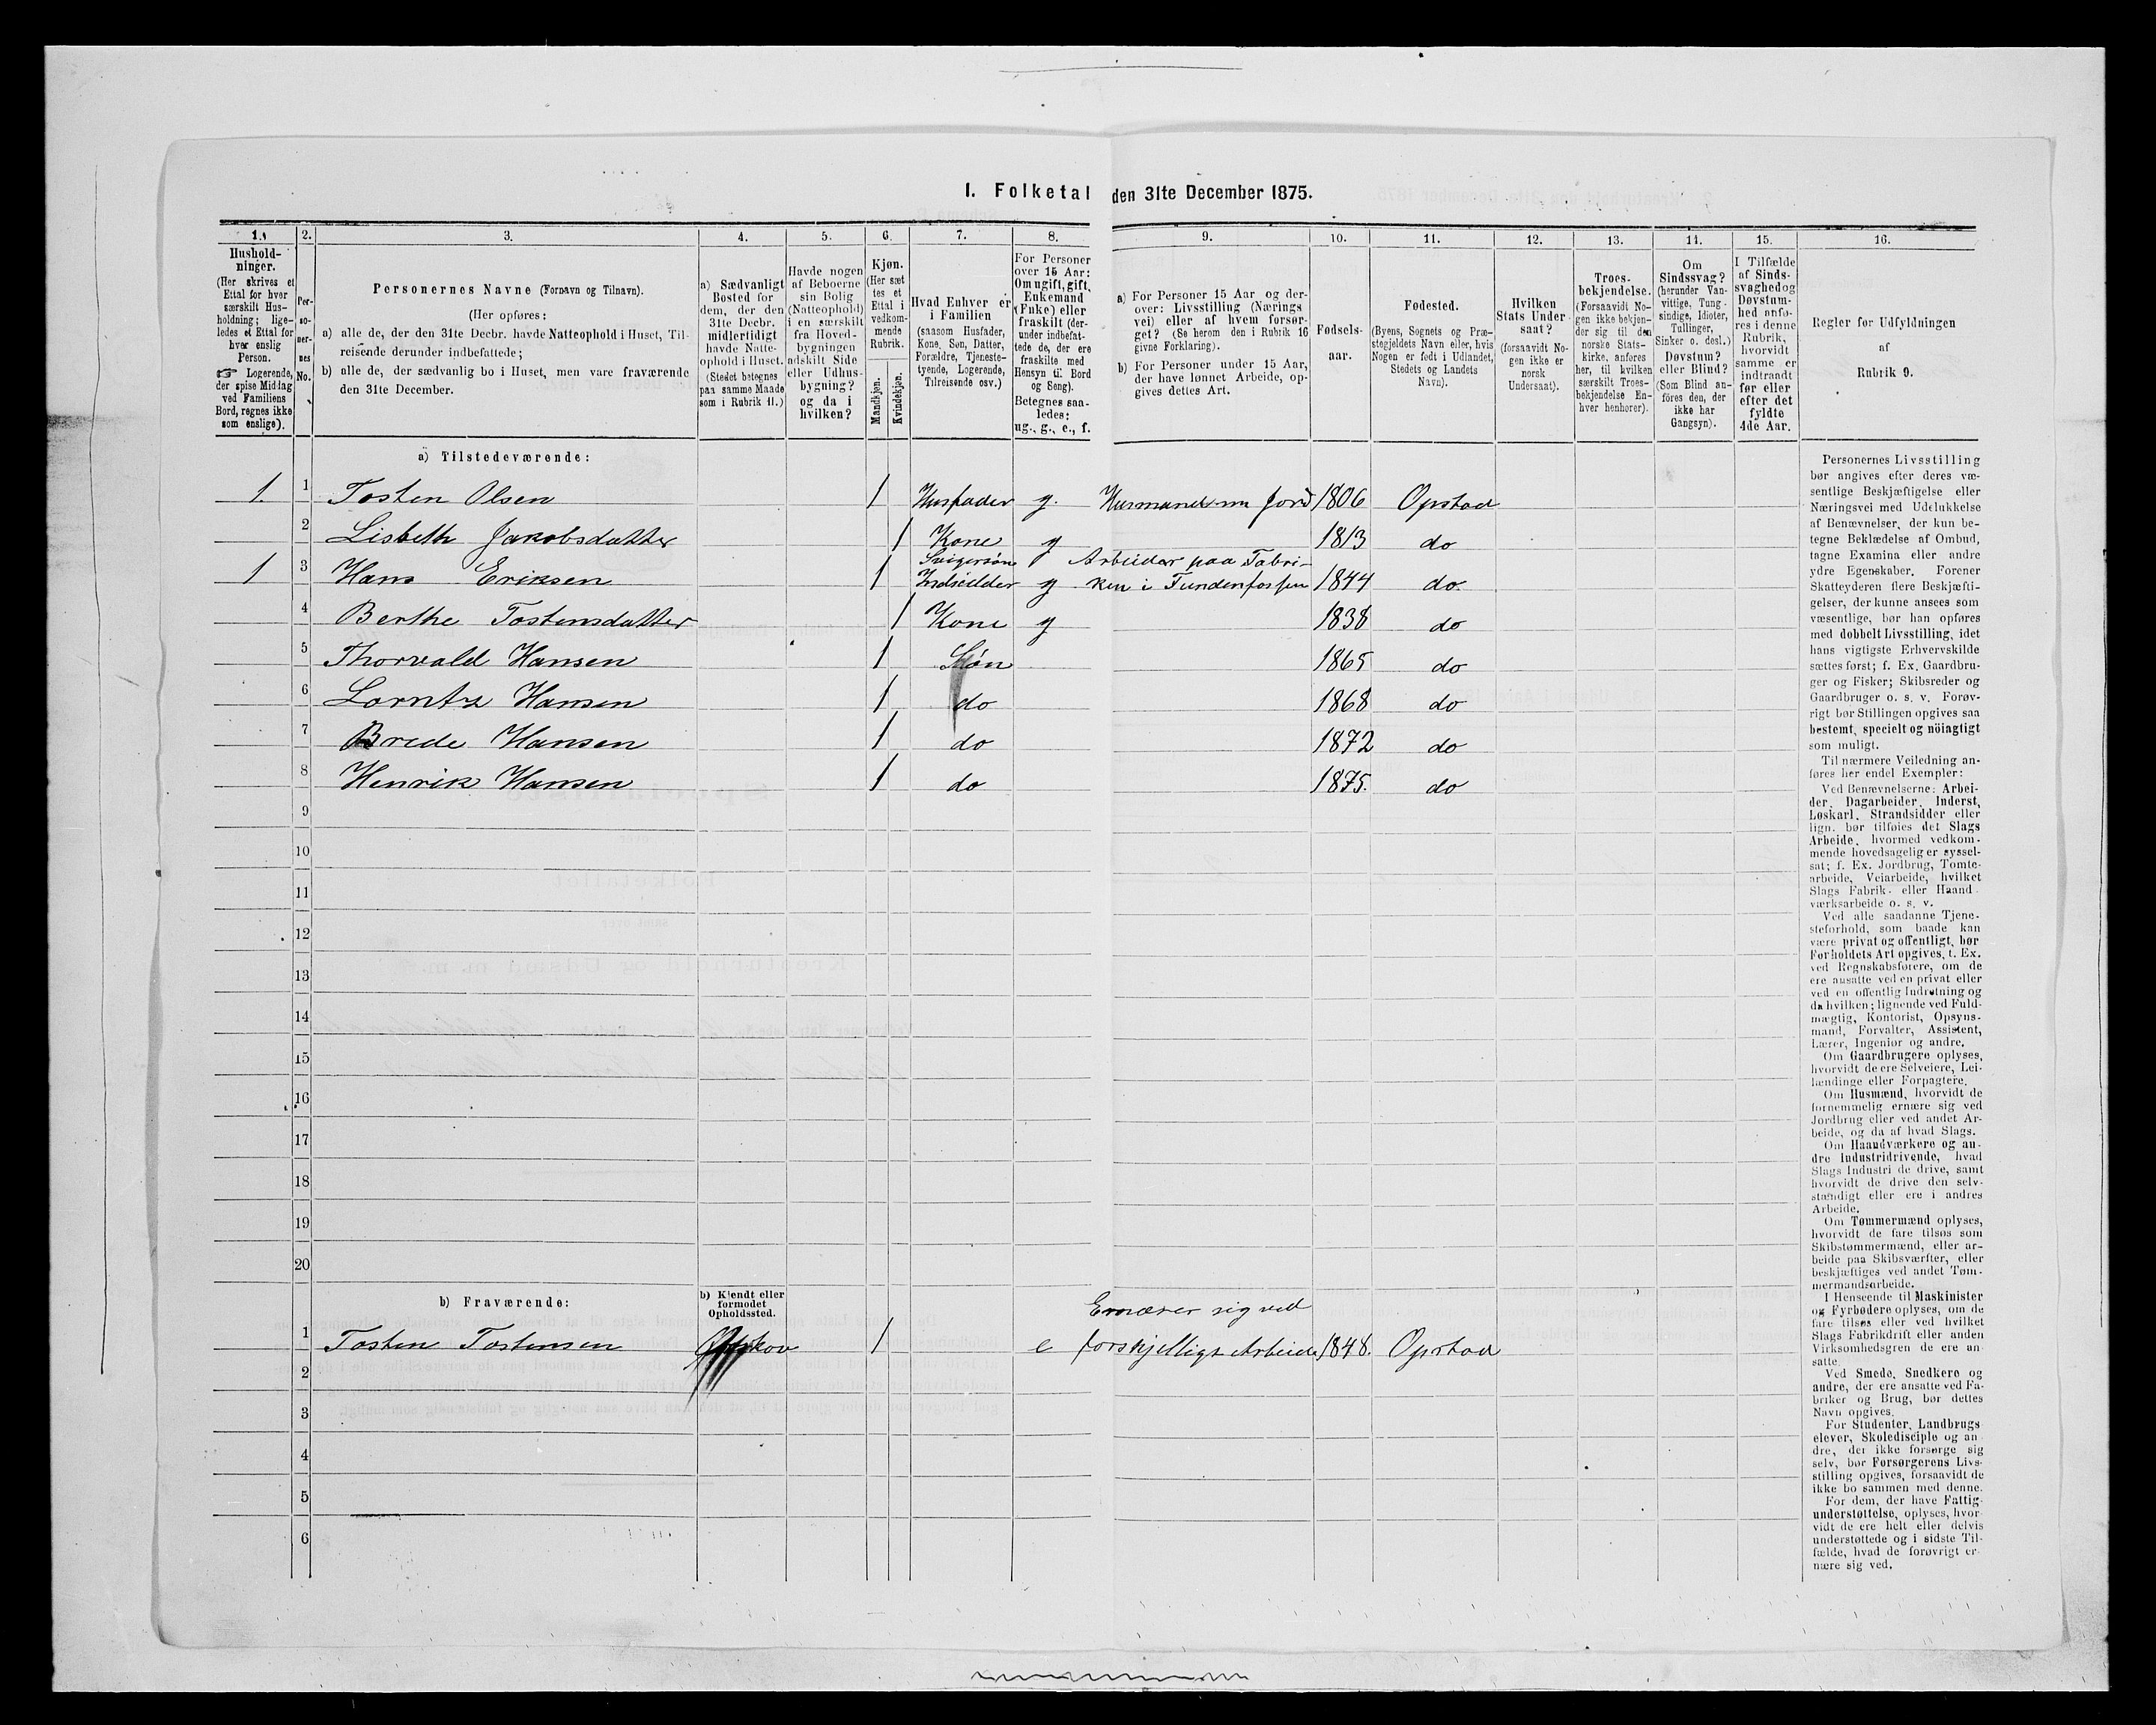 1. Folketal den 31te December 1875.
1. 2. 3. 4. 5. 6. 7. 8. 9. 10. 11. 12. 13. 14. 15. 16.
Hushold-
ninger.
(Her skrives et
Ettal for hver
særskilt Hus-
holdning; lige-
ledes et Ettal for
hver enslig
Person.
☞ Logerende,
der spise Middag
ved Familiens
Bord, regnes ikke
som enslige).
Per-
so-
ner-
nes
No.
Personernes Navne (Fornavn og Tilnavn).
(Her opføres:
a) alle de, der den 31te Decbr. havde Natteophold i Huset, Til-
reisende derunder indbefattede;
b) alle de, der sædvanlig bo i Huset, men vare fraværende
den 31te December.
a) Sædvanligt
Bosted for
dem, der den
31te Decbr.
midlertidigt
havde Natte-
ophold i Huset.
(Stedet betegnes
paa samme Maade
som i Rubrik 11.)
Havde nogen
af Beboerne
sin Bolig
(Natteophold)
i en særskilt
fra Hoved-
bygningen
adskilt Side
eller Udhus-
bygning?
og da i
hvilken?
Kjøn.
(Her sæt
tes et
Ettal i
vedkom-
mende
Rubrik.
Mandkjøn.
Kvindekjøn.
Hvad Enhver er
i Familien
(saasom Husfader,
Kone, Søn, Datter,
Forældre, Tjeneste-
tyende, Logerende,
Tilreisende osv.)
For Personer
over 15 Aar:
Om ugift, gift,
Enkemand
(Enke) eller
fraskilt (der-
under indbefat-
tede de, der ere
fraskilte med
Hensyn til Bord
og Seng).
Betegnes saa-
ledes:
ug., g., e., f.
a) For Personer 15 Aar og der-
over: Livsstilling (Nærings
vei) eller af hvem forsør-
get? (Se herom den i Rubrik 16
givne Forklaring).
b) For Personer under 15 Aar,
der have lønnet Arbeide, op-
gives dettes Art.
Fødsels-
aar.
Fødested.
(Byens, Sognets og Præ-
stegjeldets Navn eller, hvis
Nogen er født i Udlandet,
Stedets og Landets
Navn).
Hvilken
Stats Under
saat?
(forsaavidt No-
gen ikke er
norsk
Undersaat).
Troes-
bekjendelse.
(Forsaavidt No-
gen ikke bekjen-
der sig til den
norske Stats-
kirke, anføres
her, til hvilken
særskilt Troes-
bekjendelse En-
hver henhører).
Om
Sindssvag?
(herunder Van-
vittige, Tung-
sindige, Idioter,
Tullinger,
Sinker o. desl.)
Døvstum?
eller Blind?
(Som Blind an-
föres den, der
ikke har
Gangsyn).
I Tilfælde
af Sinds-
svaghed og
Døvstum-
hed anfø-
res i denne
Rubrik,
hvorvidt
samme er
indtraadt
før eller
efter det
fyldte
4de Aar.
Regler før Udfyldningen
af
Rubrik 9.
a) Tilstedeværende:
1 1 Tosten Olsen 1 Husfader g. Husmand m Jord 1806 Opstad
2 Lisbeth Jakobsdatter 1 Kone g 1813 do
Svigersøn Arbeider paa Fabri-
1 3 Hans Eriksen 1 Indsidder g ken i Fundenfossen 1844 do.
4 Berthe Tostensdatter 1 Kone g 1838 do
5 Thorvald Hansen 1 Søn 1865 do
6 Lorntz Hansen 1 do 1868 do
7 Brede Hansen 1 do 1872 do
8 Henrik Hansen 1 do 1875. do
9
10
11
12
13
14
15
16
17
18
19
20
b) Fraværende:
b) Kjendt eller
formodet
Opholdssted.
Ernærer sig ved
1 Tosten Tostensen 1 e forskjelligt Arbeide 1848. Opstad
2
3
4
5
6
Personernes Livsstilling
bør angives efter deres væ-
sentlige Beskjæftigelse eller
Næringsvei med Udelukkelse
af Benævnelser, der kun be-
tegne Beklædelse af Ombud,
tagne Examina eller andre
ydre Egenskaber. Forener
Skatteyderen flere Beskjæfti-
gelser, der kunne ansees som
væsentlige, bør han opføres
med dobbelt Livsstilling, idet
hans vigtigste Erhvervskilde
sættes først; f. Ex. Gaardbru-
ger og Fisker; Skibsreder og
Gaardbruger o. s. v. Forøv-
rigt bør Stillingen opgives saa
bestemt, specielt og nöiagtigt
som muligt.
Til nærmere Veiledning an-
føres her endel Exempler:
Ved Benævnelserne: Arbei-
der, Dagarbeider, Inderst,
Løskarl, Strandsidder eller
lign. bør tilføies det Slags
Arbeide, hvormed vedkom-
mende hovedsagelig er syssel-
sat; f. Ex. Jordbrug, Tomte-
arbeide, Veiarbeide, hvilket
Slags Fabrik- eller Haand-
værksarbeide o. s. v.
Ved alle saadanne Tjene-
steforhold, som baade kan
være privat og offentligt, bør
Forholdets Art opgives, t. Ex.
ved Regnskabsførere, om de
ere ansatte ved en privat eller
ved en offentlig Indretning og
da hvilken; lignende ved Fuld-
mægtig, Kontorist, Opsyns-
mand, Forvalter, Assistent,
Lærer, Ingeniør og andre.
Om Gaardbrugere oplyses,
hvorvidt de ere Selveiere, Lei-
lændinge eller Forpagtere.
Om Husmænd, hvorvidt de
fornemmelig ernære sig ved
Jordbrug eller ved andet Ar-
beide, og da af hvad Slags.
Om Haandværkere og an-
dre Industridrivende, hvad
Slags Industri de drive, samt
hvorvidt de drive den selv-
stændigt eller ere i andres
Arbeide.
Om Tømmermænd oplyses,
hvorvidt de fare tilsøs som
Skibstømmermænd, eller ar-
beide paa Skibsværfter, eller
beskjæftiges ved andet Tøm-
mermandsarbeide.
I Henseende til Maskinister
og Fyrbødere oplyses, om de
fare tilsøs eller ved hvilket
Slags Fabrikdrift eller anden
Virksomhedsgren de ere an-
satte.
Ved Smede, Snedkere og
andre, der ere ansatte ved Fa-
briker og Brug, bør dettes
Navn opgives.
For Studenter, Landbrugs
elever, Skoledisciple og an
dre, der ikke forsørge sig
selv, bør Forsørgerens Livs-
stilling opgives, forsaavidt de
ikke bo sammen med denne.
For dem, der have Fattig-
understøttelse, oplyses, hvor-
vidt de ere helt eller delvis
understøttede og i sidste Til-
fælde, hvad de forøvrigt er-
nære sig ved.